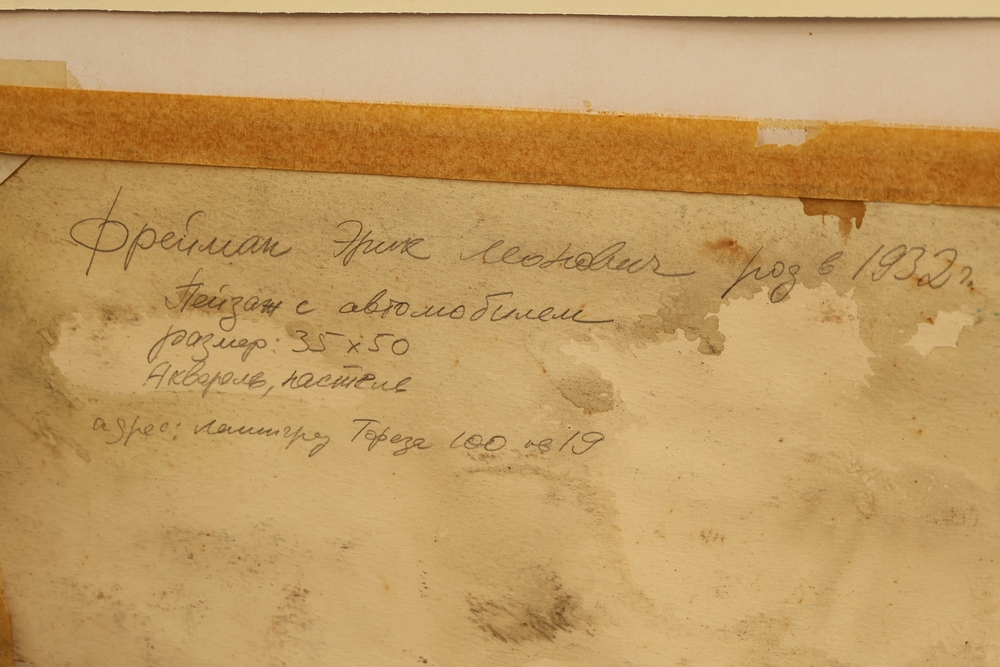 Фрейман Эрик Леонович род в 1932 г.
Пейзаж с автомобилем
размер: 35 x 50
Акварель, пастель
адрес: Ленинград Тореза 100 кв 19